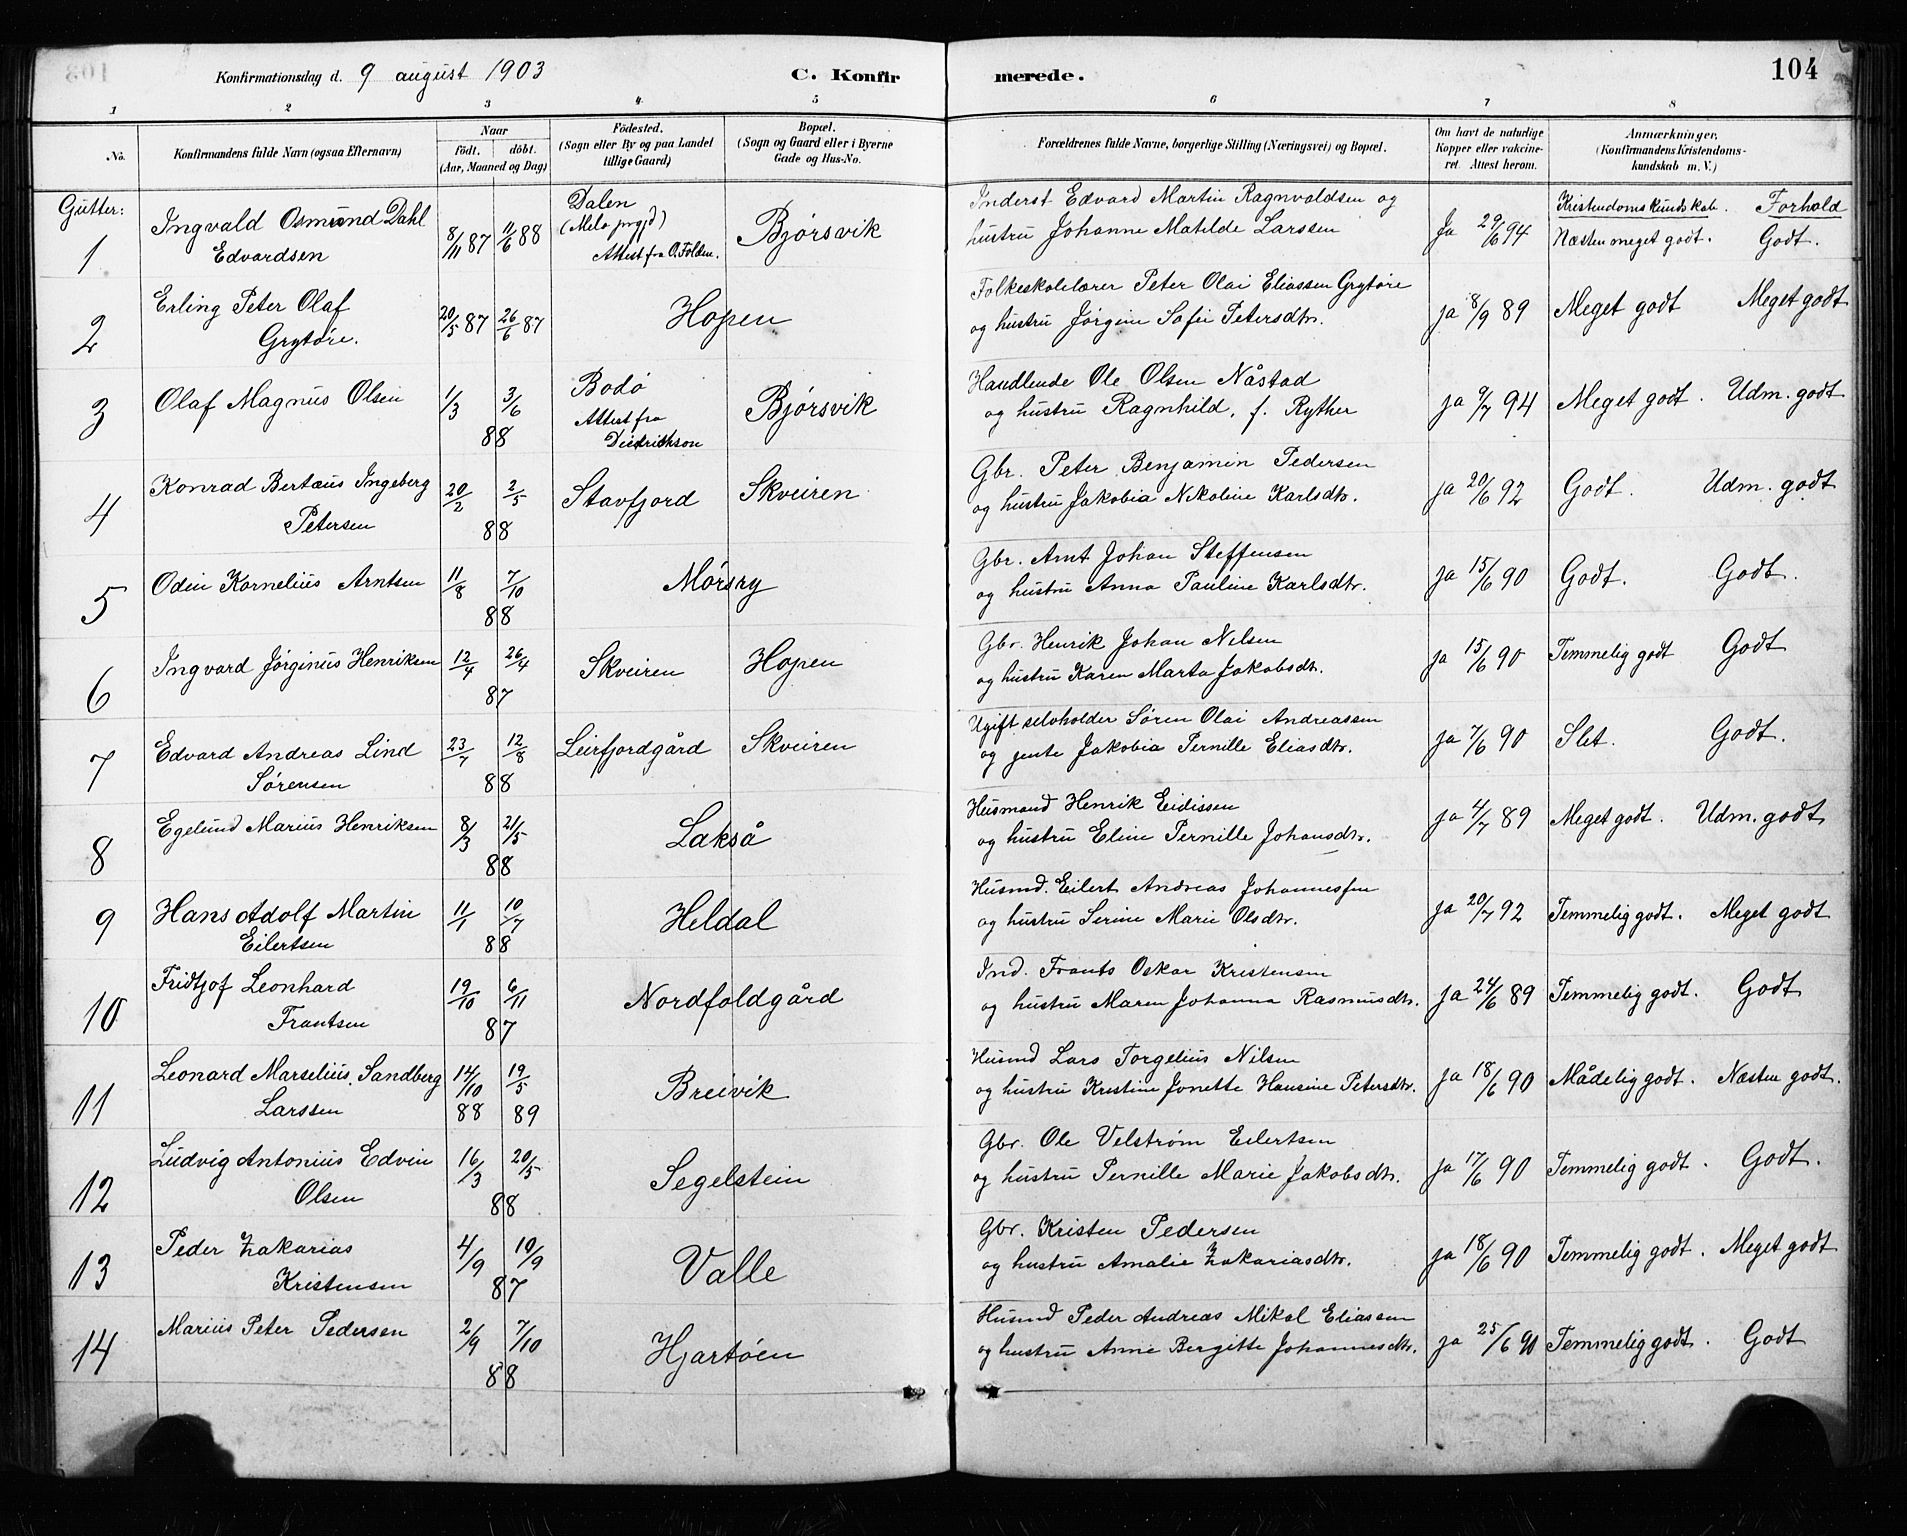 Konfirmationsdag d. 9 august 1903 C. Konfirmerede. 104
1 2 3 4 5 6 7 8
No. Konfirmandens fulde Navn (ogsaa Efternavn) Naar födt. döbt. (Aar, Maaned og Dag) Födested. (Sogn eller By og paa Landet tillige Gaard) Bopæl. (Sogn og Gaard eller i Byerne Gade og Hus-No. Forældrenes fulde Navne, borgerlige Stilling (Næringsvei) og Bopæl. Om havt de naturlige Kopper eller vaccineret. Attest herom. Anmærkninger, (Konfirmandens Kristendomskundskab m. V.)
Gutter:
Kristendomskundskab. Forhold
1 Ingvald Osmund Dahl Edvardsen 8/11 87 11/6 88 Dalen (Melø prgjd) Attest fra O. Folden. Bjørsvik Inderst Edvard Martin Ragnvaldsen og
hustru Johanne Matilde Larssen Ja 29/6 94 Næsten meget godt. Godt.
2 Erling Peter Olaf Grytøre. 20/5 87 26/6 87 Hopen Folkeskolelærer Peter Olai Eliassen Grytøre
og hustru Jørgine Sofie Petersdtr. ja 8/9 89 Meget godt Meget godt
3 Olaf Magnus Olsen 1/3 3/6 88 Bodø Attest fra Diedrickson Bjørsvik Handlende Ole Olsen Nåstad
og hustru Ragnhild, f. Ryther ja 9/7 94 Meget godt. Udm. godt
4 Konrad Bertæus Ingeberg Petersen 20/2 2/5 88 Stavfjord Skveiren Gbr. Peter Benjamin Pedersen
og hustru Jakobia Nikoline Karlsdtr. ja 20/6 92 Godt. Udm. godt
5 Odin Kornelius Arntsen 11/8 7/10 88 Mørsry Gbr. Arnt Johan Steffensen
og hustru Anna Pauline Karlsdtr. ja 15/6 90 Godt. Godt.
6 Ingvard Jørginus Henriksen 12/4 26/4 87 Skveiren Hopen Gbr. Henrik Johan Nilsen
og hustru Karen Marta Jakobsdtr. ja 15/6 90 Temmelig godt Godt
7 Edvard Andreas Lind Sørensen 23/7 12/8 88 Leirfjordgård Skveiren Ugift selvholder Søren Olai Andreassen
og jente Jakobia Pernille Eliasdtr. ja 7/6 90 Slet. Godt.
8 Egelund Marius Henriksen 8/3 21/5 88 Lakså Husmand Henrik Eidissen
og hustru Eline Pernille Johansdtr. ja 4/7 89 Meget godt. Udm. godt
9 Hans Adolf Martin Eilertsen 11/1 10/7 88 Heldal Husmd. Eilert Andreas Johannessen
og hustru Serine Marie Olsdtr. ja 20/7 92 Temmelig godt. Meget godt
10 Fridtjof Leonhard Frantsen 19/10 6/11 87 Nordfoldgård Ind. Frants Oskar Kristensen
og hustru Maren Johanna Rasmusdtr. ja 24/6 89 Temmelig godt. Godt
11 Leonard Marselius Sandberg Larssen 14/10 88 19/5 89 Breivik Husmd Lars Torgelius Nilsen
og hustru Kristine Jonette Hansine Petersdtr. ja 18/6 90 Mådelig godt. Næsten godt.
12 Ludvig Antonius Edvin Olsen 16/3 20/5 88 Segelstein Gbr. Ole Velstrøm Eilertsen
og hustru Pernille Marie Jakobsdtr. ja 17/6 90 Temmelig godt. Godt.
13 Peder Zakarias Kristensen 4/9 10/9 87 Valle Gbr. Kristen Pedersen
og hustru Amalie Zakariasdtr. ja 18/6 90 Temmelig godt. Meget godt
14 Marius Peter Pedersen 2/9 7/10 88 Hjartøen Husmd Peder Andreas Mikal Eliassen
og hustru Anne Bergitte Johannesdtr. ja 25/6 90 Temmelig godt. Godt